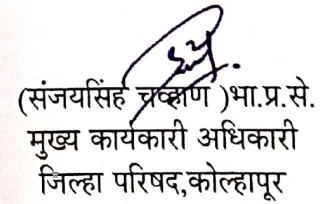 (संजयसिंह चव्हाण )भा.प्र.से.
मुख्य कार्यकारी अधिकारी
जिल्हा परिषद,कोल्हापूर